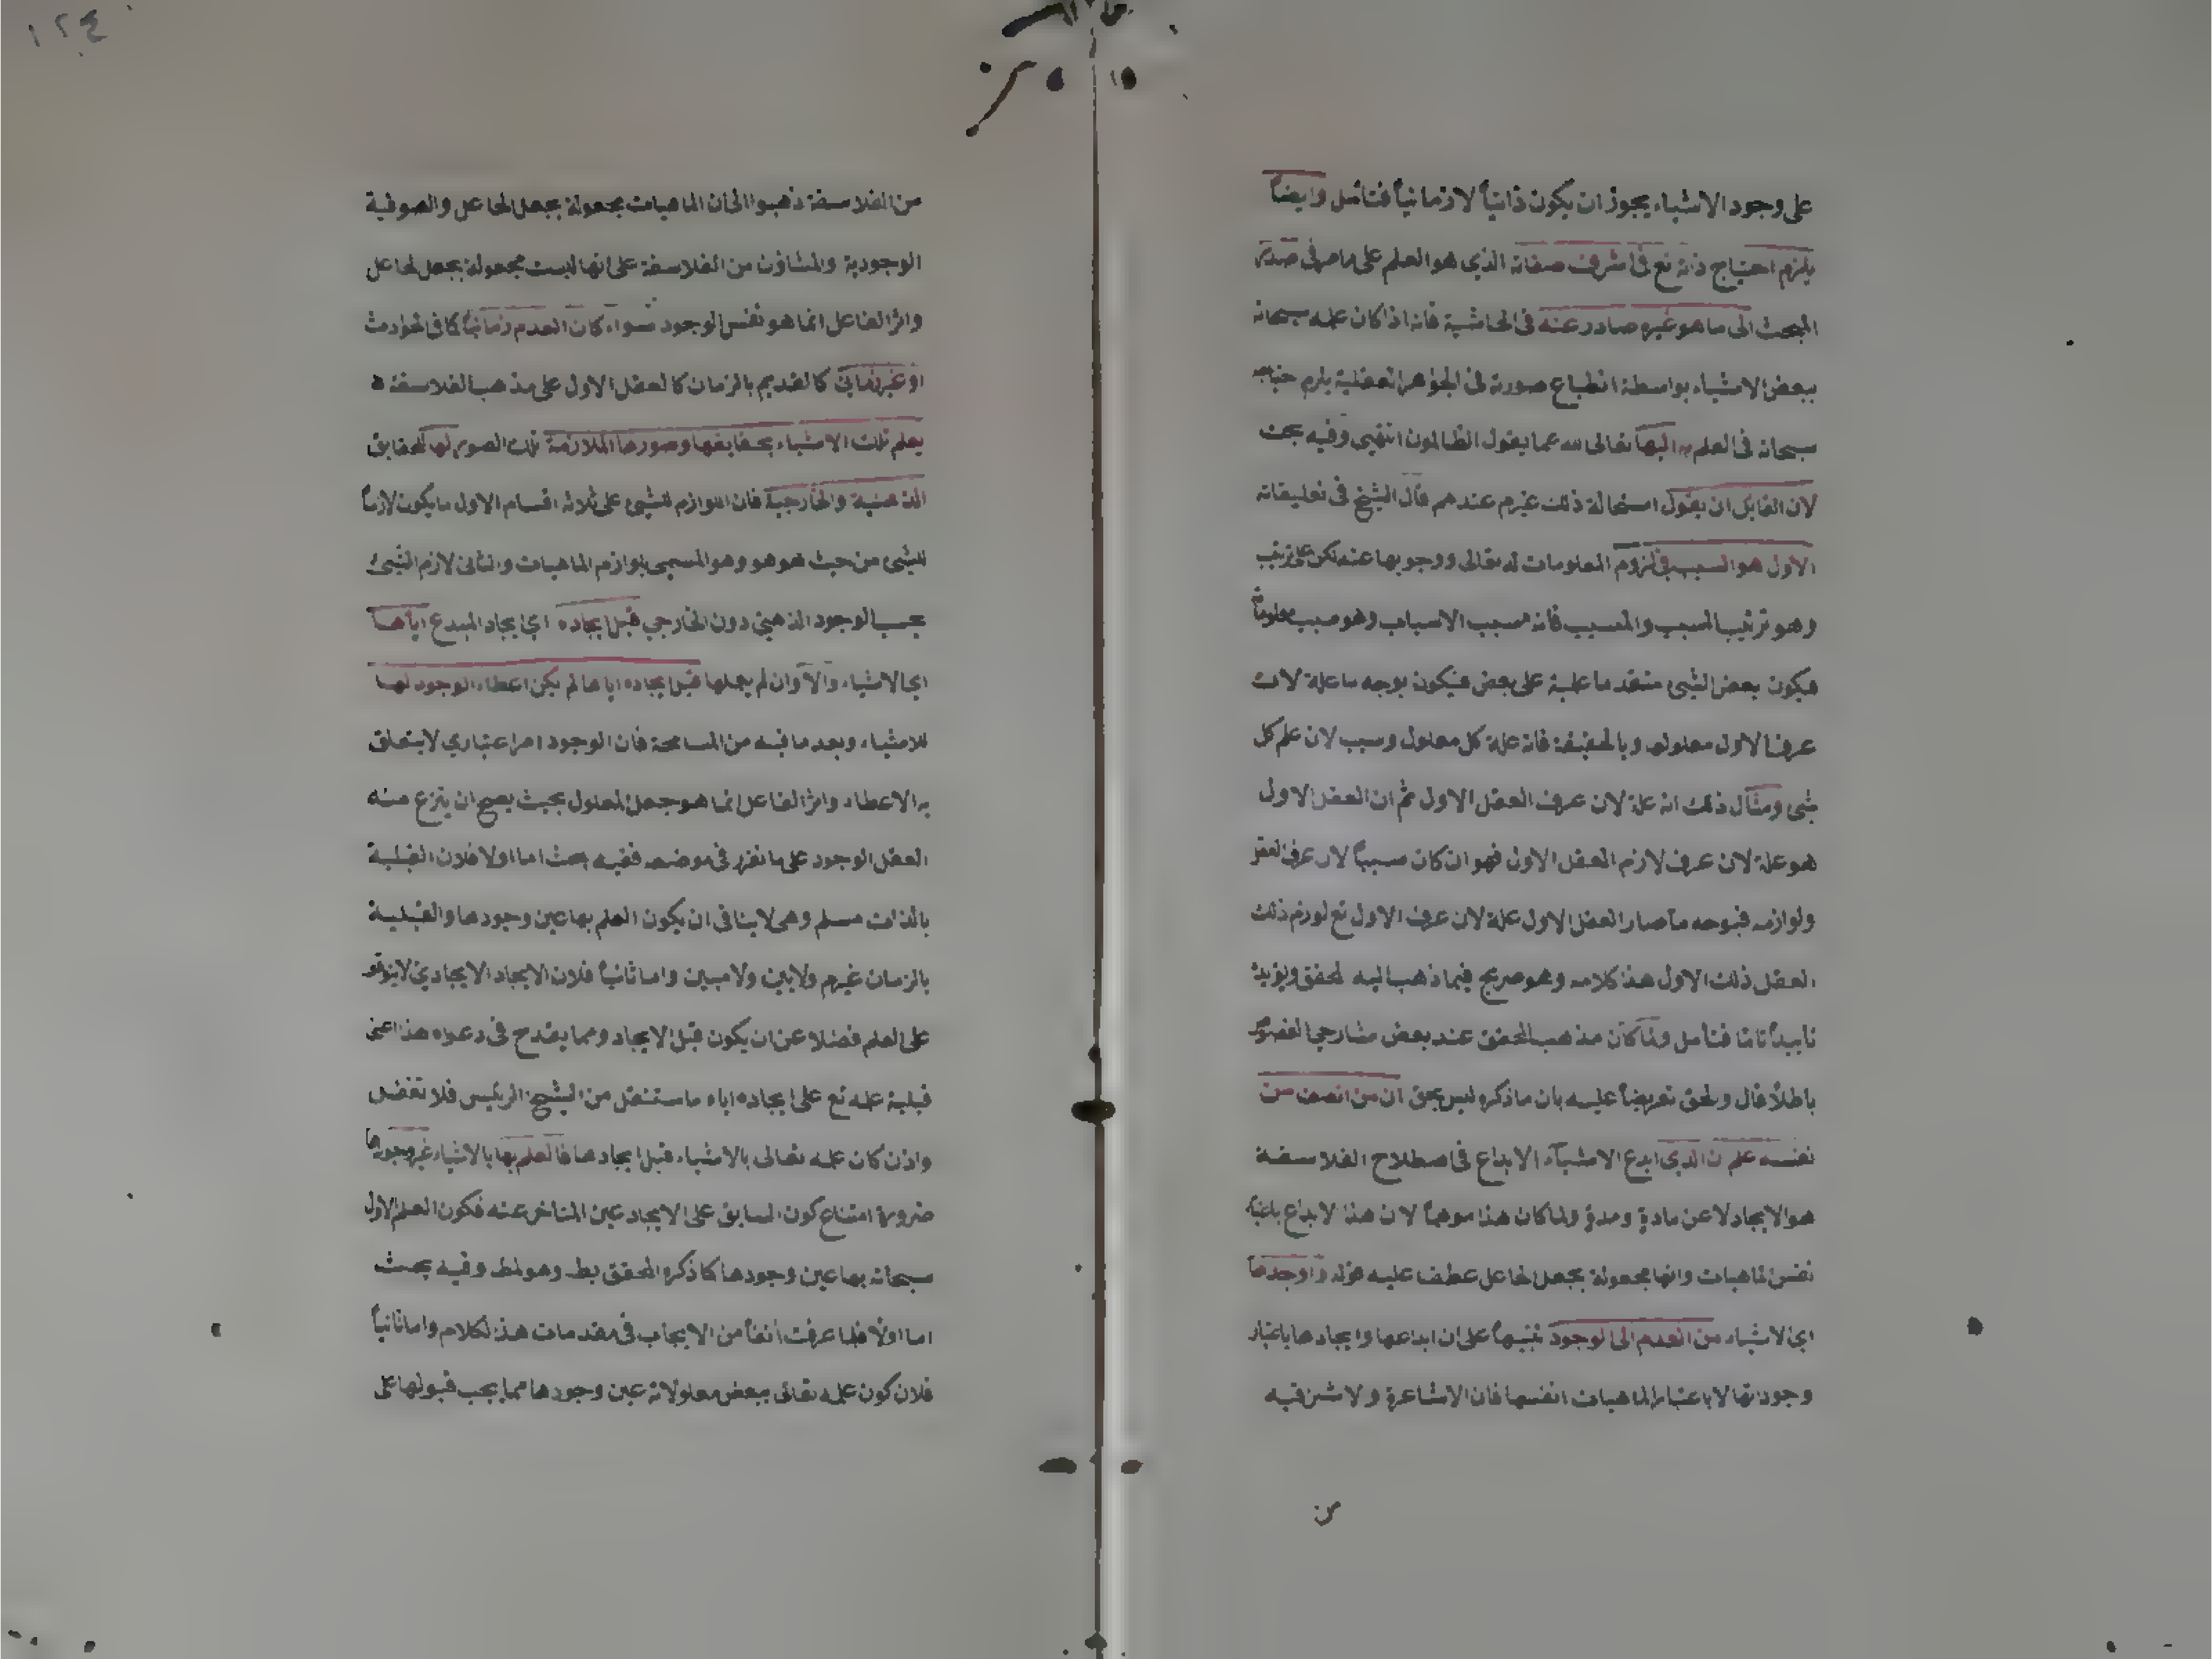 على وجود الاشياء يجوز ان يكون ذاتياً لا زمانياً فتأمل وايضاً
يلزم احتياج ذاته تع في اشرف صفاته الذي هو العلم على ما مر في صدر
المبحث الى ما هو غيره صادر عنه في الحاشية فانه اذا كان علمه سبحانه
ببعض الاشياء بواسطة انطباع صورته في الجواهر العقلية يلزم
سبحانه في العلم به اليها تعالى الله عما يقول الظالمون انتهى وفيه بحث
لان القايل ان يقول استحالة ذلك غيرم عندهم قال الشيخ في تعليقاته
الاول هو السبب في لزوم المعلومات له تعالى ووجوبها عنه لكن على ترتيب
وهو ترتيب السبب والمسبب فانه مسبب الاسباب وهو سبب معلوماته
فيكون بعض الشيئ متقدما عليه على بعض فيكون بوجه ما علة لان
عرف الاول معلولها وبالحقيقة فانه علة كل معلول وسبب لان علم كل
شئ ومثال ذلك انه علة لان عرف العقل الاول ثم ان العقل الاول
هو علة لان عرف لازم العقل الاول فهو ان كان سبباً لان عرف العقل
ولوازمه فبوجه ما صار العقل الاول علة لان عرف الاول تع لوزم ذلك
العقل ذلك الاول هذا كلامه وهو صريح فيما ذهب اليه المحقق ويؤيده
تأييداً تاما فتأمل ولما كان مذهب المحقق عند بعض شارحي الفصوص
باطلاً قال والحق تعريضاً عليه بان ما ذكره ليس بحق ان من انصف من
نفسه علم ان الذي ابدع الاشياء الابداع في اصطلاح الفلاسفة
هو الايجاد لا عن مادة ومدة ولما كان هذا موهماً لان هذا الابداع باعتبار
نفس الماهيات وانها مجعولة بجعل الجاعل عطف عليه قوله واوجدها
اي الاشياء من العدم الى الوجود تنبيهاً على ان ابداعها وايجادها باعتبار
وجوداتها لا باعتبار الماهيات انفسها فان الاشاعرة ولا شرفيه
من
١٢٤
من الفلاسفة ذهبوا الى ان الماهيات مجعولة بجعل الجاعل والصوفية
الوجودية والمشاؤن من الفلاسفة على انها ليست مجعولة بجعل الجاعل
واثر الفاعل انما هو نفس الوجود سواء كان العدم زمانياً كما في الحوادث
او غير زماني كالقديم بالزمان كالعقل الاول على مذهب الفلاسفة
يعلم تلك الاشياء بحقايقها وصورها الملازمة تلك الصور لها للحقايق
الذهنية والخارجية فان اللوازم للشيئ على ثلاثة اقسام الاول ما يكون لازماً
للشيئ من حيث هو هو وهو المسمى بلوازم الماهيات والثاني لازم الشيئ
بحسب الوجود الذهني دون الخارجي قبل ايجاده اي ايجاد المبدع اياها
اي الاشياء والا وان لم يعلمها قبل ايجاده اياها لم يكن اعطاء الوجود لها
للاشياء وبعد ما فيه من المسامحة فان الوجود امر اعتباري لا يتعلق
به الاعطاء واثر الفاعل انما هو جعل المعلول بحيث يصح ان ينتزع منه
العقل الوجود على ما تقرر في موضعه ففيه بحث اما اولا فلان القبلية
بالذات مسلم وهي لا ينافي ان يكون العلم بها عين وجودها والقبلية
بالزمان غيرم ولا بين ولا مبين واما ثانياً فلان الايجاد الايجادي لا يتوقف
على العلم فضلا عن ان يكون قبل الايجاد ومما يقدح في دعواه هذا اعني
قبلية علمه تع على ايجاده اياه ما ستنقل من الشيخ الرئيس فلا تغفل
واذن كان علمه تعالى بالاشياء قبل ايجادها فالعلم بها بالاشياء غير وجودها
ضرورة امتناع كون السابق على الايجاد عين المتاخر عنه فكون العلم الاول
سبحانه بها عين وجودها كما ذكره المحقق بط وهو لمط وفيه بحث
اما اولا فلما عرفت انفاً من الايجاب في مقدمات هذا الكلام واما ثانياً
فلان كون علمه تعالى ببعض معلولاته عين وجودها مما يجب قبولها على